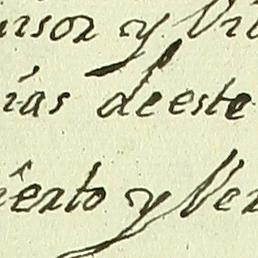 ursor y Vi
ias deeste
ierto y Ver